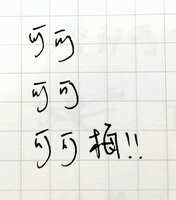 可可
可可
可可!!